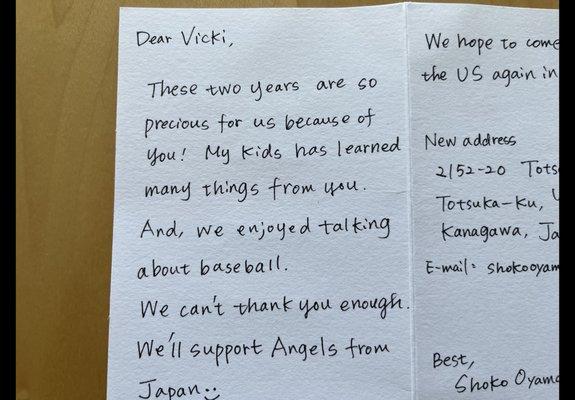 Dear Vicki,
These two years are so
precious for us because of
you! My kids has learned
many things from you.
And, we enjoyed talking
about baseball.
We can't thank you enough.
We'll support Angels from
Japan
We hope to come
the US again in
New address
2152-20
Totsuka-Ku,
Kanagawa,
E-mail:
Best,
Shoko